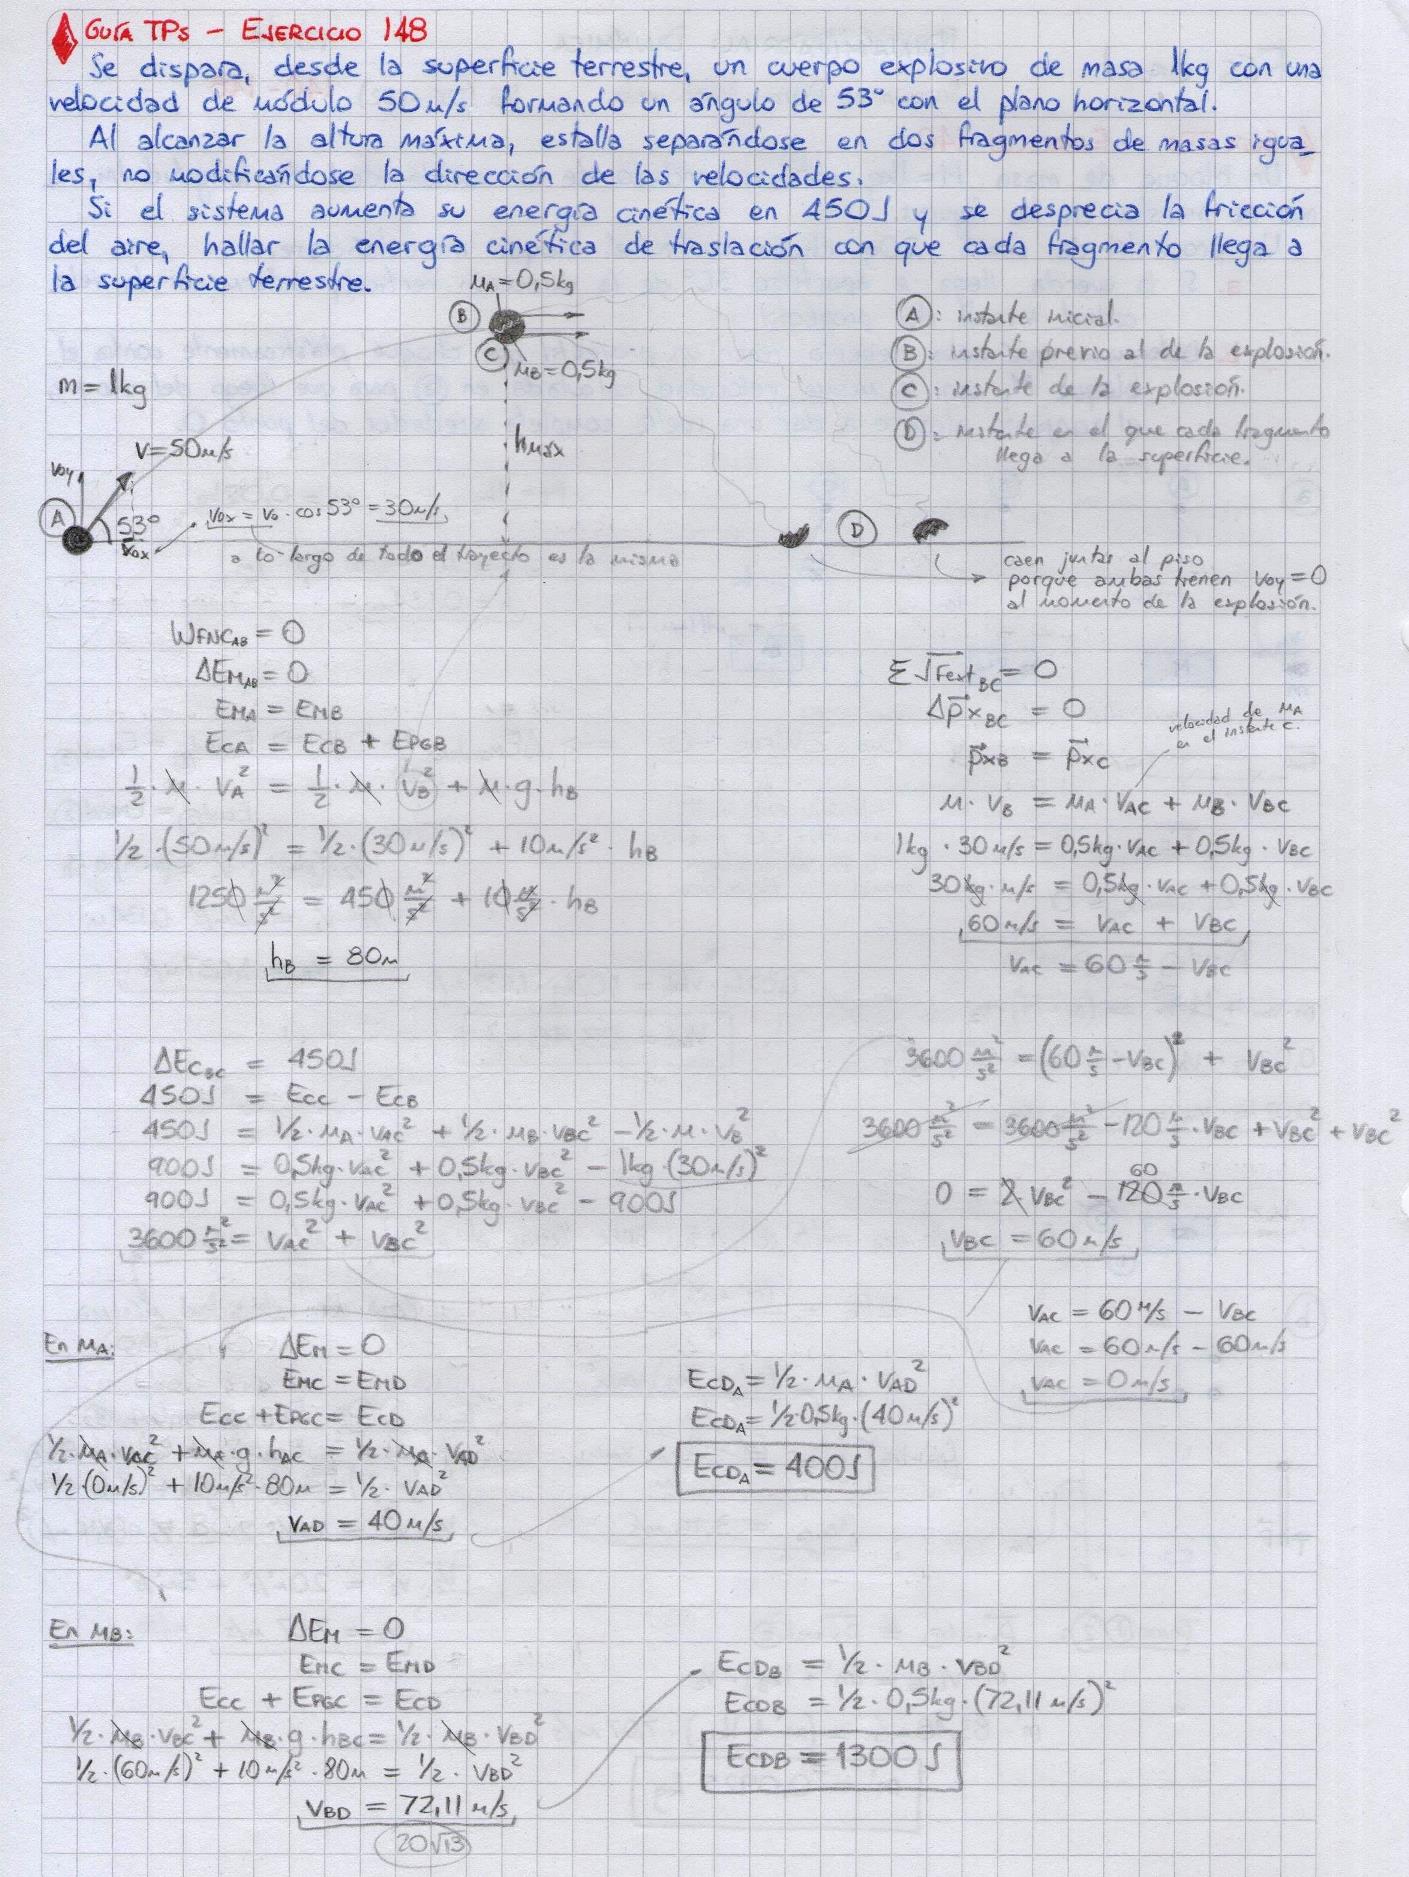 GUÍA TPs - EJERCICIO 148
Se dispara, desde la superficie terrestre, un cuerpo explosivo de masa 1kg con una
velocidad de módulo 50m/s formando un ángulo de 53° con el plano horizontal.
Al alcanzar la altura máxima, estalla separándose en dos fragmentos de masas igua_
les, no modificándose la dirección de las velocidades.
Si el sistema aumenta su energía cinética en 450J y se desprecia la fricción
del aire, hallar la energía cinética de traslación con que cada fragmento llega a
la superficie terrestre.
mA=0,5kg
B
C
mB=0,5kg
A: instante inicial.
B: instante previo al de la explosión.
C: instante de la explosión.
D: instante en el que cada fragmento
llega a la superficie.
m = 1kg
hmáx
v=50m/s
voy
A
53°
vox
vox = vo · cos 53° = 30m/s,
a lo largo de todo el trayecto es la misma
D
caen juntas al piso
porque ambas tienen voy=0
al momento de la explosión.
WFNCAB = 0
ΔEMAB = 0
EMA = EMB
ECA = ECB + EPGB
1/2 · m · vA² = 1/2 · m · vB² + m · g · hB
1/2 · (50m/s)² = 1/2 · (30m/s)² + 10m/s² · hB
1250 m²/s² = 450 m²/s² + 10 m/s² · hB
hB = 80m
Σ JFext BC = 0
Δp⃗xBC = 0
velocidad de mA
en el instante C.
p⃗xB = p⃗xC
m · vB = mA · vAC + mB · vBC
1kg · 30m/s = 0,5kg · vAC + 0,5kg · vBC
30kg · m/s = 0,5kg · vAC + 0,5kg · vBC
60m/s = vAC + vBC
vAC = 60 m/s - vBC
ΔECBC = 450J
450J = ECC - ECB
450J = 1/2 · mA · vAC² + 1/2 · mB · vBC² - 1/2 · m · vB²
900J = 0,5kg · vAC² + 0,5kg · vBC² - 1kg · (30m/s)²
900J = 0,5kg · vAC² + 0,5kg · vBC² - 900J
3600 m²/s² = vAC² + vBC²
3600 m²/s² = (60 m/s - vBC)² + vBC²
3600 m²/s² = 3600 m²/s² - 120 m/s · vBC + vBC² + vBC²
60
0 = 2 vBC² - 120 m/s · vBC
vBC = 60m/s
vAC = 60m/s - vBC
vAC = 60m/s - 60m/s
vAC = 0m/s
En mA:
ΔEM = 0
EMC = EMD
ECC + EPGC = ECD
1/2 · mA · vAC² + mA · g · hAC = 1/2 · mA · vAD²
1/2 · (0m/s)² + 10m/s² · 80m = 1/2 · vAD²
vAD = 40m/s
ECDA = 1/2 · mA · vAD²
ECDA = 1/2 · 0,5kg · (40m/s)²
ECDA = 400J
En mB:
ΔEM = 0
EMC = EMD
ECC + EPGC = ECD
1/2 · mB · vBC² + mB · g · hBC = 1/2 · mB · vBD²
1/2 · (60m/s)² + 10m/s² · 80m = 1/2 · vBD²
vBD = 72,11m/s
20√13
ECDB = 1/2 · mB · vBD²
ECDB = 1/2 · 0,5kg · (72,11m/s)²
ECDB = 1300J